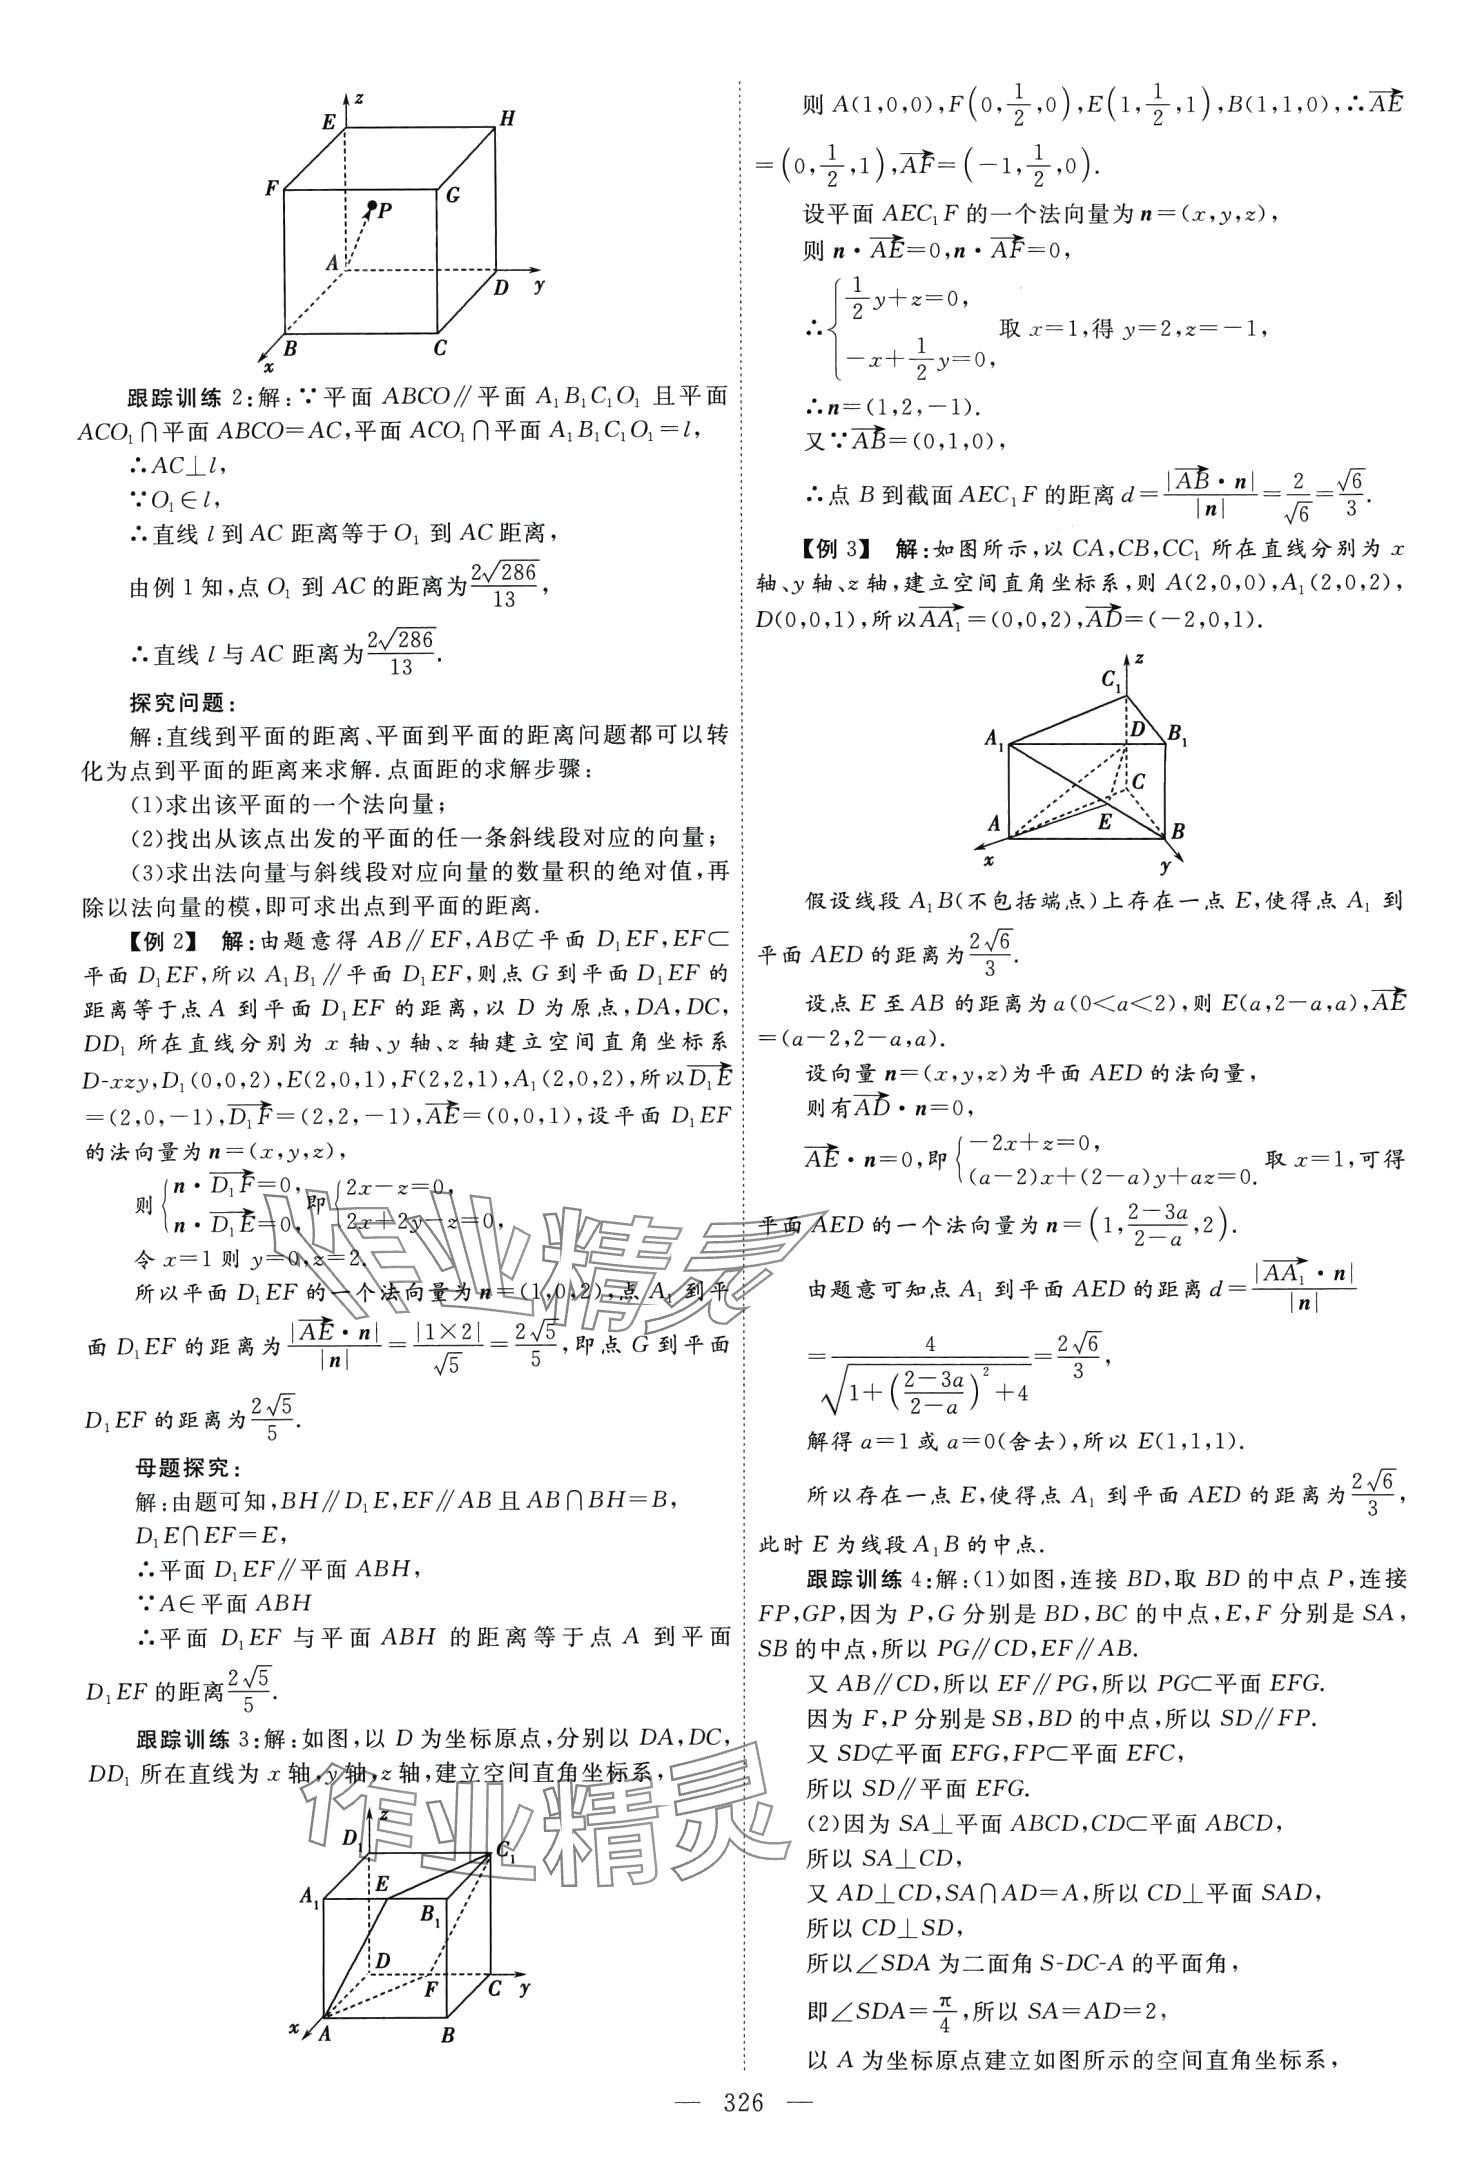 z
E
H
F
G
P
A
D
y
B
C
x
跟踪训练 2:解:∵平面 ABCO∥平面 A₁B₁C₁O₁ 且平面
ACO₁∩平面 ABCO=AC,平面 ACO₁∩平面 A₁B₁C₁O₁=l,
∴AC⊥l,
∵O₁∈l,
∴直线 l 到 AC 距离等于 O₁ 到 AC 距离,
由例 1 知,点 O₁ 到 AC 的距离为2√286/13,
∴直线 l 与 AC 距离为2√286/13.
探究问题:
解:直线到平面的距离、平面到平面的距离问题都可以转
化为点到平面的距离来求解.点面距的求解步骤:
(1)求出该平面的一个法向量;
(2)找出从该点出发的平面的任一条斜线段对应的向量;
(3)求出法向量与斜线段对应向量的数量积的绝对值,再
除以法向量的模,即可求出点到平面的距离.
【例 2】 解:由题意得 AB∥EF,AB⊄平面 D₁EF,EF⊂
平面 D₁EF,所以 A₁B₁∥平面 D₁EF,则点 G 到平面 D₁EF 的
距离等于点 A 到平面 D₁EF 的距离,以 D 为原点,DA,DC,
DD₁ 所在直线分别为 x 轴、y 轴、z 轴建立空间直角坐标系
D-xzy,D₁(0,0,2),E(2,0,1),F(2,2,1),A₁(2,0,2),所以D₁E→
=(2,0,-1),D₁F→=(2,2,-1),AE→=(0,0,1),设平面 D₁EF
的法向量为 n=(x,y,z),
则{n·D₁F→=0, n·D₁E→=0,即{2x-z=0, 2x+2y-z=0,
令 x=1 则 y=0,z=2.
所以平面 D₁EF 的一个法向量为 n=(1,0,2),点 A₁ 到平
面 D₁EF 的距离为|AE→·n|/|n|=|1×2|/√5=2√5/5,即点 G 到平面
D₁EF 的距离为2√5/5.
母题探究:
解:由题可知,BH∥D₁E,EF∥AB 且 AB∩BH=B,
D₁E∩EF=E,
∴平面 D₁EF∥平面 ABH,
∵A∈平面 ABH
∴平面 D₁EF 与平面 ABH 的距离等于点 A 到平面
D₁EF 的距离2√5/5.
跟踪训练 3:解:如图,以 D 为坐标原点,分别以 DA,DC,
DD₁ 所在直线为 x 轴,y 轴,z 轴,建立空间直角坐标系,
z
D₁
C₁
A₁
E
B₁
D
F
C
y
x
A
B
则 A(1,0,0),F(0,1/2,0),E(1,1/2,1),B(1,1,0),∴AE→
=(0,1/2,1),AF→=(-1,1/2,0).
设平面 AEC₁F 的一个法向量为 n=(x,y,z),
则 n·AE→=0,n·AF→=0,
∴{1/2y+z=0, -x+1/2y=0, 取 x=1,得 y=2,z=-1,
∴n=(1,2,-1).
又∵AB→=(0,1,0),
∴点 B 到截面 AEC₁F 的距离 d=|AB→·n|/|n|=2/√6=√6/3.
【例 3】 解:如图所示,以 CA,CB,CC₁ 所在直线分别为 x
轴、y 轴、z 轴,建立空间直角坐标系,则 A(2,0,0),A₁(2,0,2),
D(0,0,1),所以AA₁→=(0,0,2),AD→=(-2,0,1).
z
C₁
A₁
D
B₁
C
A
E
B
x
y
假设线段 A₁B(不包括端点)上存在一点 E,使得点 A₁ 到
平面 AED 的距离为2√6/3.
设点 E 至 AB 的距离为 a(0<a<2),则 E(a,2-a,a),AE→
=(a-2,2-a,a).
设向量 n=(x,y,z)为平面 AED 的法向量,
则有AD→·n=0,
AE→·n=0,即{-2x+z=0, (a-2)x+(2-a)y+az=0. 取 x=1,可得
平面 AED 的一个法向量为 n=(1,(2-3a)/(2-a),2).
由题意可知点 A₁ 到平面 AED 的距离 d=|AA₁→·n|/|n|
=4/√(1+((2-3a)/(2-a))²+4)=2√6/3,
解得 a=1 或 a=0(舍去),所以 E(1,1,1).
所以存在一点 E,使得点 A₁ 到平面 AED 的距离为2√6/3,
此时 E 为线段 A₁B 的中点.
跟踪训练 4:解:(1)如图,连接 BD,取 BD 的中点 P,连接
FP,GP,因为 P,G 分别是 BD,BC 的中点,E,F 分别是 SA,
SB 的中点,所以 PG∥CD,EF∥AB.
又 AB∥CD,所以 EF∥PG,所以 PG⊂平面 EFG.
因为 F,P 分别是 SB,BD 的中点,所以 SD∥FP.
又 SD⊄平面 EFG,FP⊂平面 EFC,
所以 SD∥平面 EFG.
(2)因为 SA⊥平面 ABCD,CD⊂平面 ABCD,
所以 SA⊥CD,
又 AD⊥CD,SA∩AD=A,所以 CD⊥平面 SAD,
所以 CD⊥SD,
所以∠SDA 为二面角 S-DC-A 的平面角,
即∠SDA=π/4,所以 SA=AD=2,
以 A 为坐标原点建立如图所示的空间直角坐标系,
— 326 —
作业精灵
作业精灵